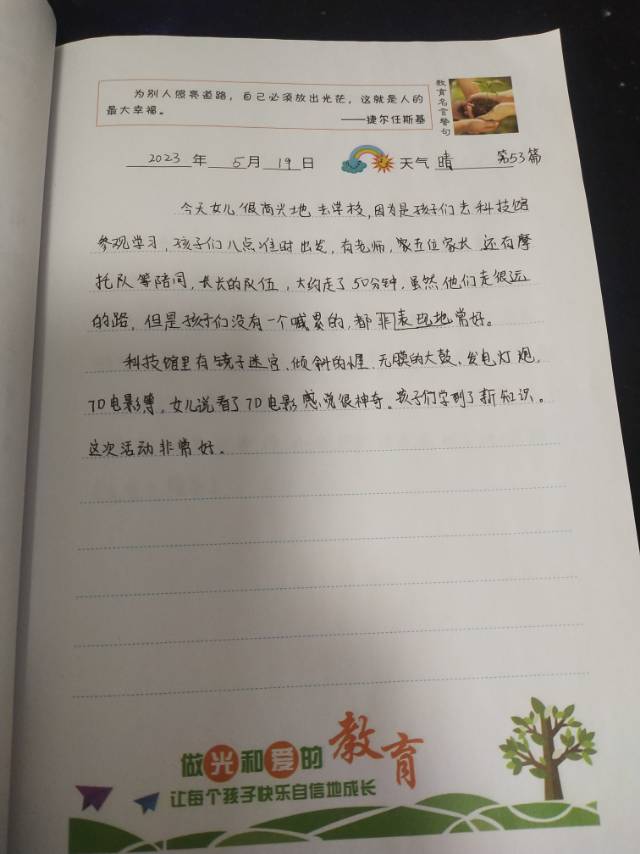 为别人照亮道路，自己必须放出光芒，这就是人的
最大幸福。
——捷尔任斯基
教育名言警句
2023 年 5 月 19 日 天气 晴 第53篇
今天女儿很高兴地去学校，因为是孩子们去科技馆
参观学习，孩子们八点准时出发，有老师，家五位家长 还有摩
托队等陪同，长长的队伍，大约走了50分钟，虽然他们走很远
的路，但是孩子们没有一个喊累的，都表现地常好。
科技馆里有镜子迷宫、倾斜的小屋、无膜的大鼓、发电灯炮、
7D电影等，女儿说看了7D电影感觉很神奇。孩子们学到了新知识。
这次活动非常好。
做光和爱的教育
让每个孩子快乐自信地成长